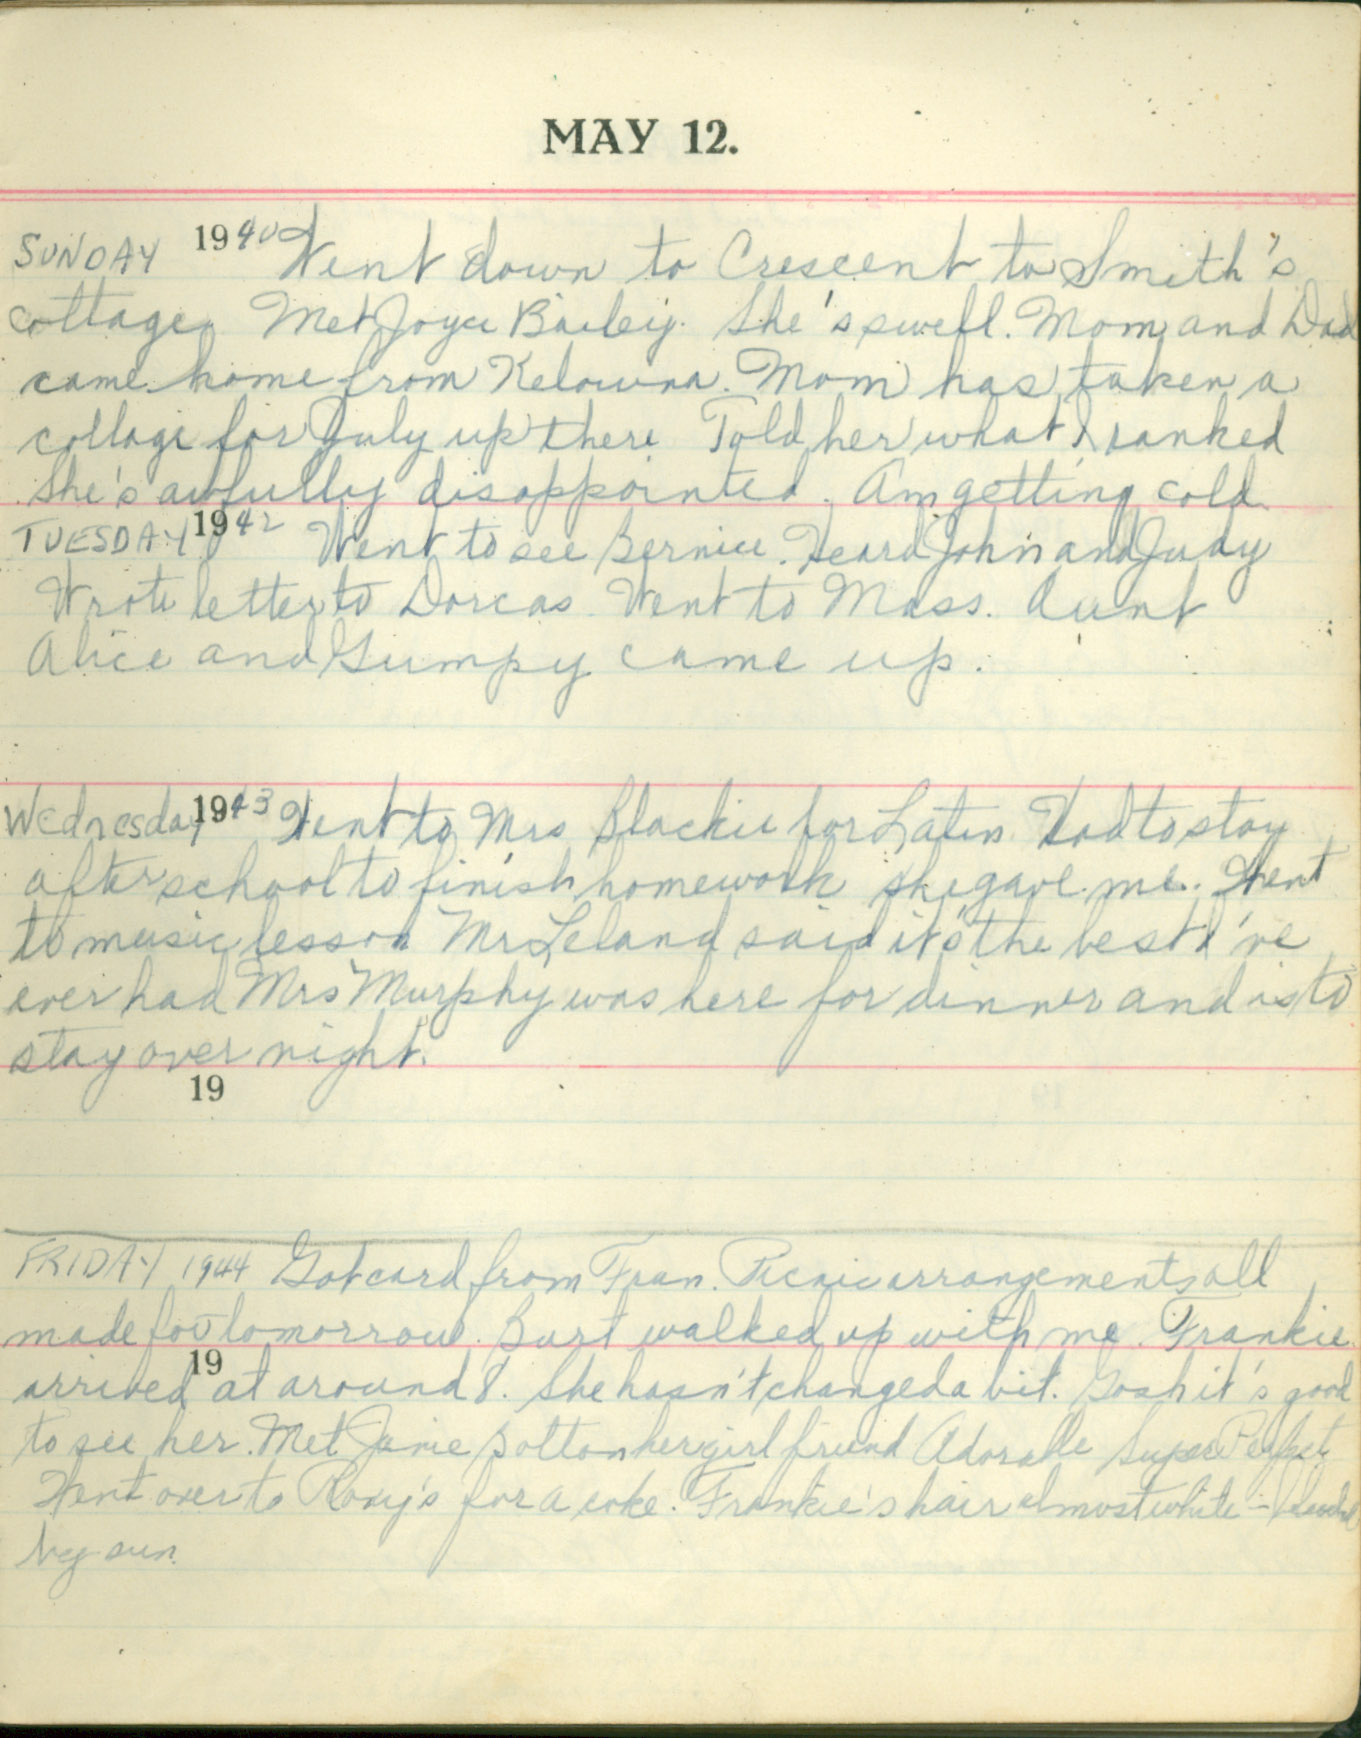 MAY 12.
SUNDAY 1940 Went down to Crescent to Smith's
cottage. Met Joyce Bailey. She's swell. Mom and Dad
came home from Kelowna. Mom has taken a
cottage for July up there Told her what I ranked
She's awfully disappointed. Am getting cold.
TUESDAY 1942 Went to see Bernice. Heard John and Judy
Wrote letter to Dorcas. Went to Mass. Aunt
Alice and Gumpy came up.
Wednesday 1943 Went to Mrs Blackie for Latin. Had to stay
after school to finish homework she gave me. Went
to music lesson Mr Leland said it's the best I've
ever had Mrs Murphy was here for dinner and is to
stay over night.
19
FRIDAY 1944 Got card from Fran. Picnic arrangements all
made for tomorrow. Burt walked up with me. Frankie
19
arrived at around 8. She hasn't changed a bit. Gosh it's good
to see her. Met Janie Bolton her girl friend Adorable Super Perfect
Went over to Roxy's for a coke. Frankie's hair almost white - bleached
by sun.